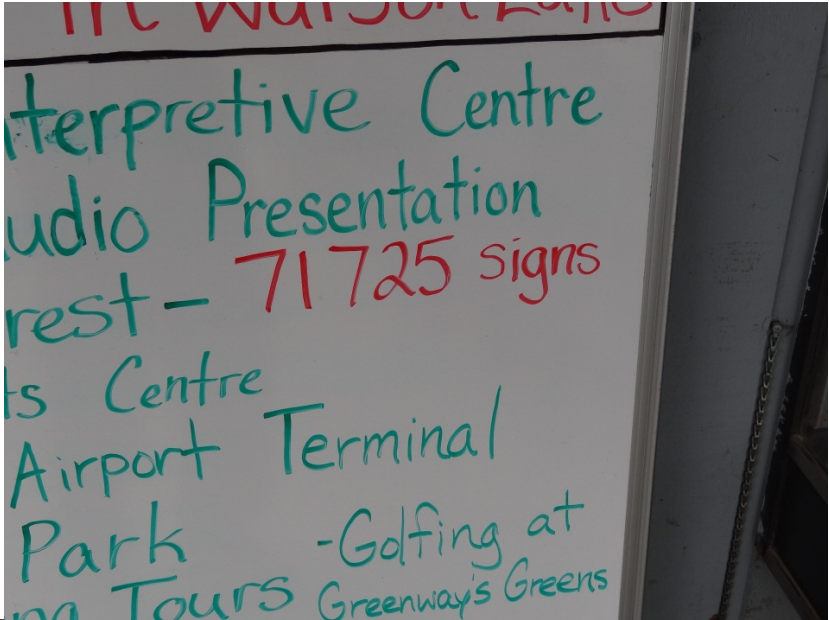 in Watson Lake
nterpretive Centre
udio Presentation
rest - 71725 signs
ts Centre
Airport Terminal
Park -Golfing at
ng Tours Greenway's Greens